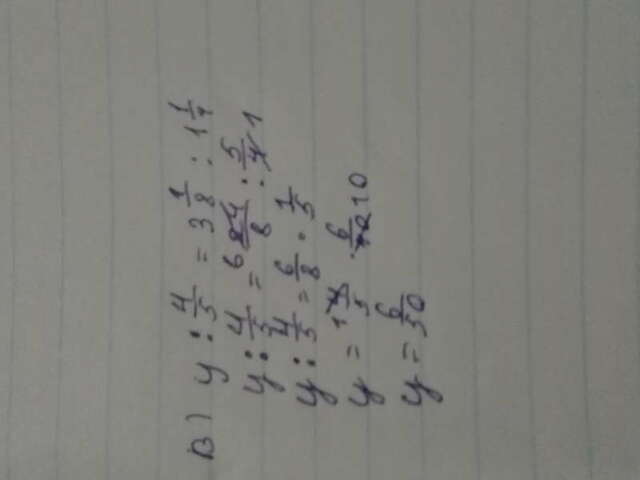 В) y : 4/5 = 3 1/8 : 1 1/4
y : 4/5 = 6 24/8 : 5/4 1
y : 4/5 = 6/8 · 1/5
y = 1 4/5 · 6/40 10
y = 6/50